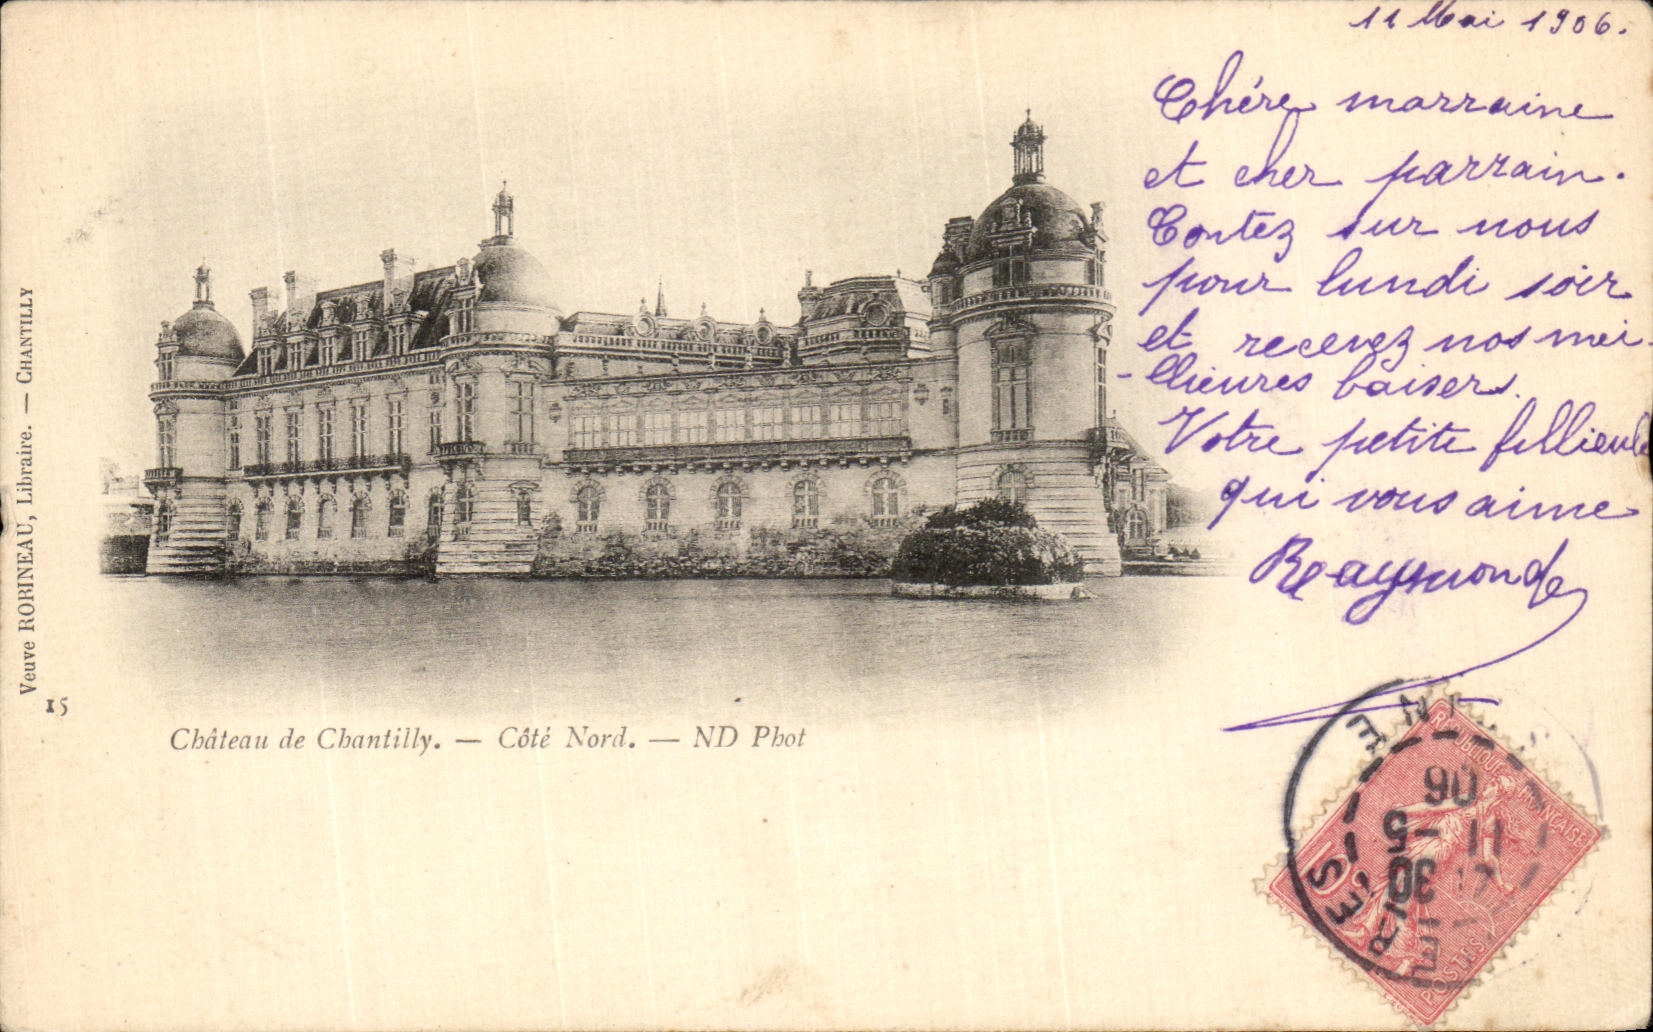 11 Mai 1906.
Chére marraine
et cher parrain.
Contez sur nous
pour lundi soir
et recevez nos mei-
-llieures baisers.
Votre petite fillieule
qui vous aime
Raymonde
Veuve ROBINEAU, Libraire. — CHANTILLY
15
Château de Chantilly. — Côté Nord. — ND Phot
RÉPUBLIQUE FRANÇAISE
POSTES
10
SEINE
11 - 5
06